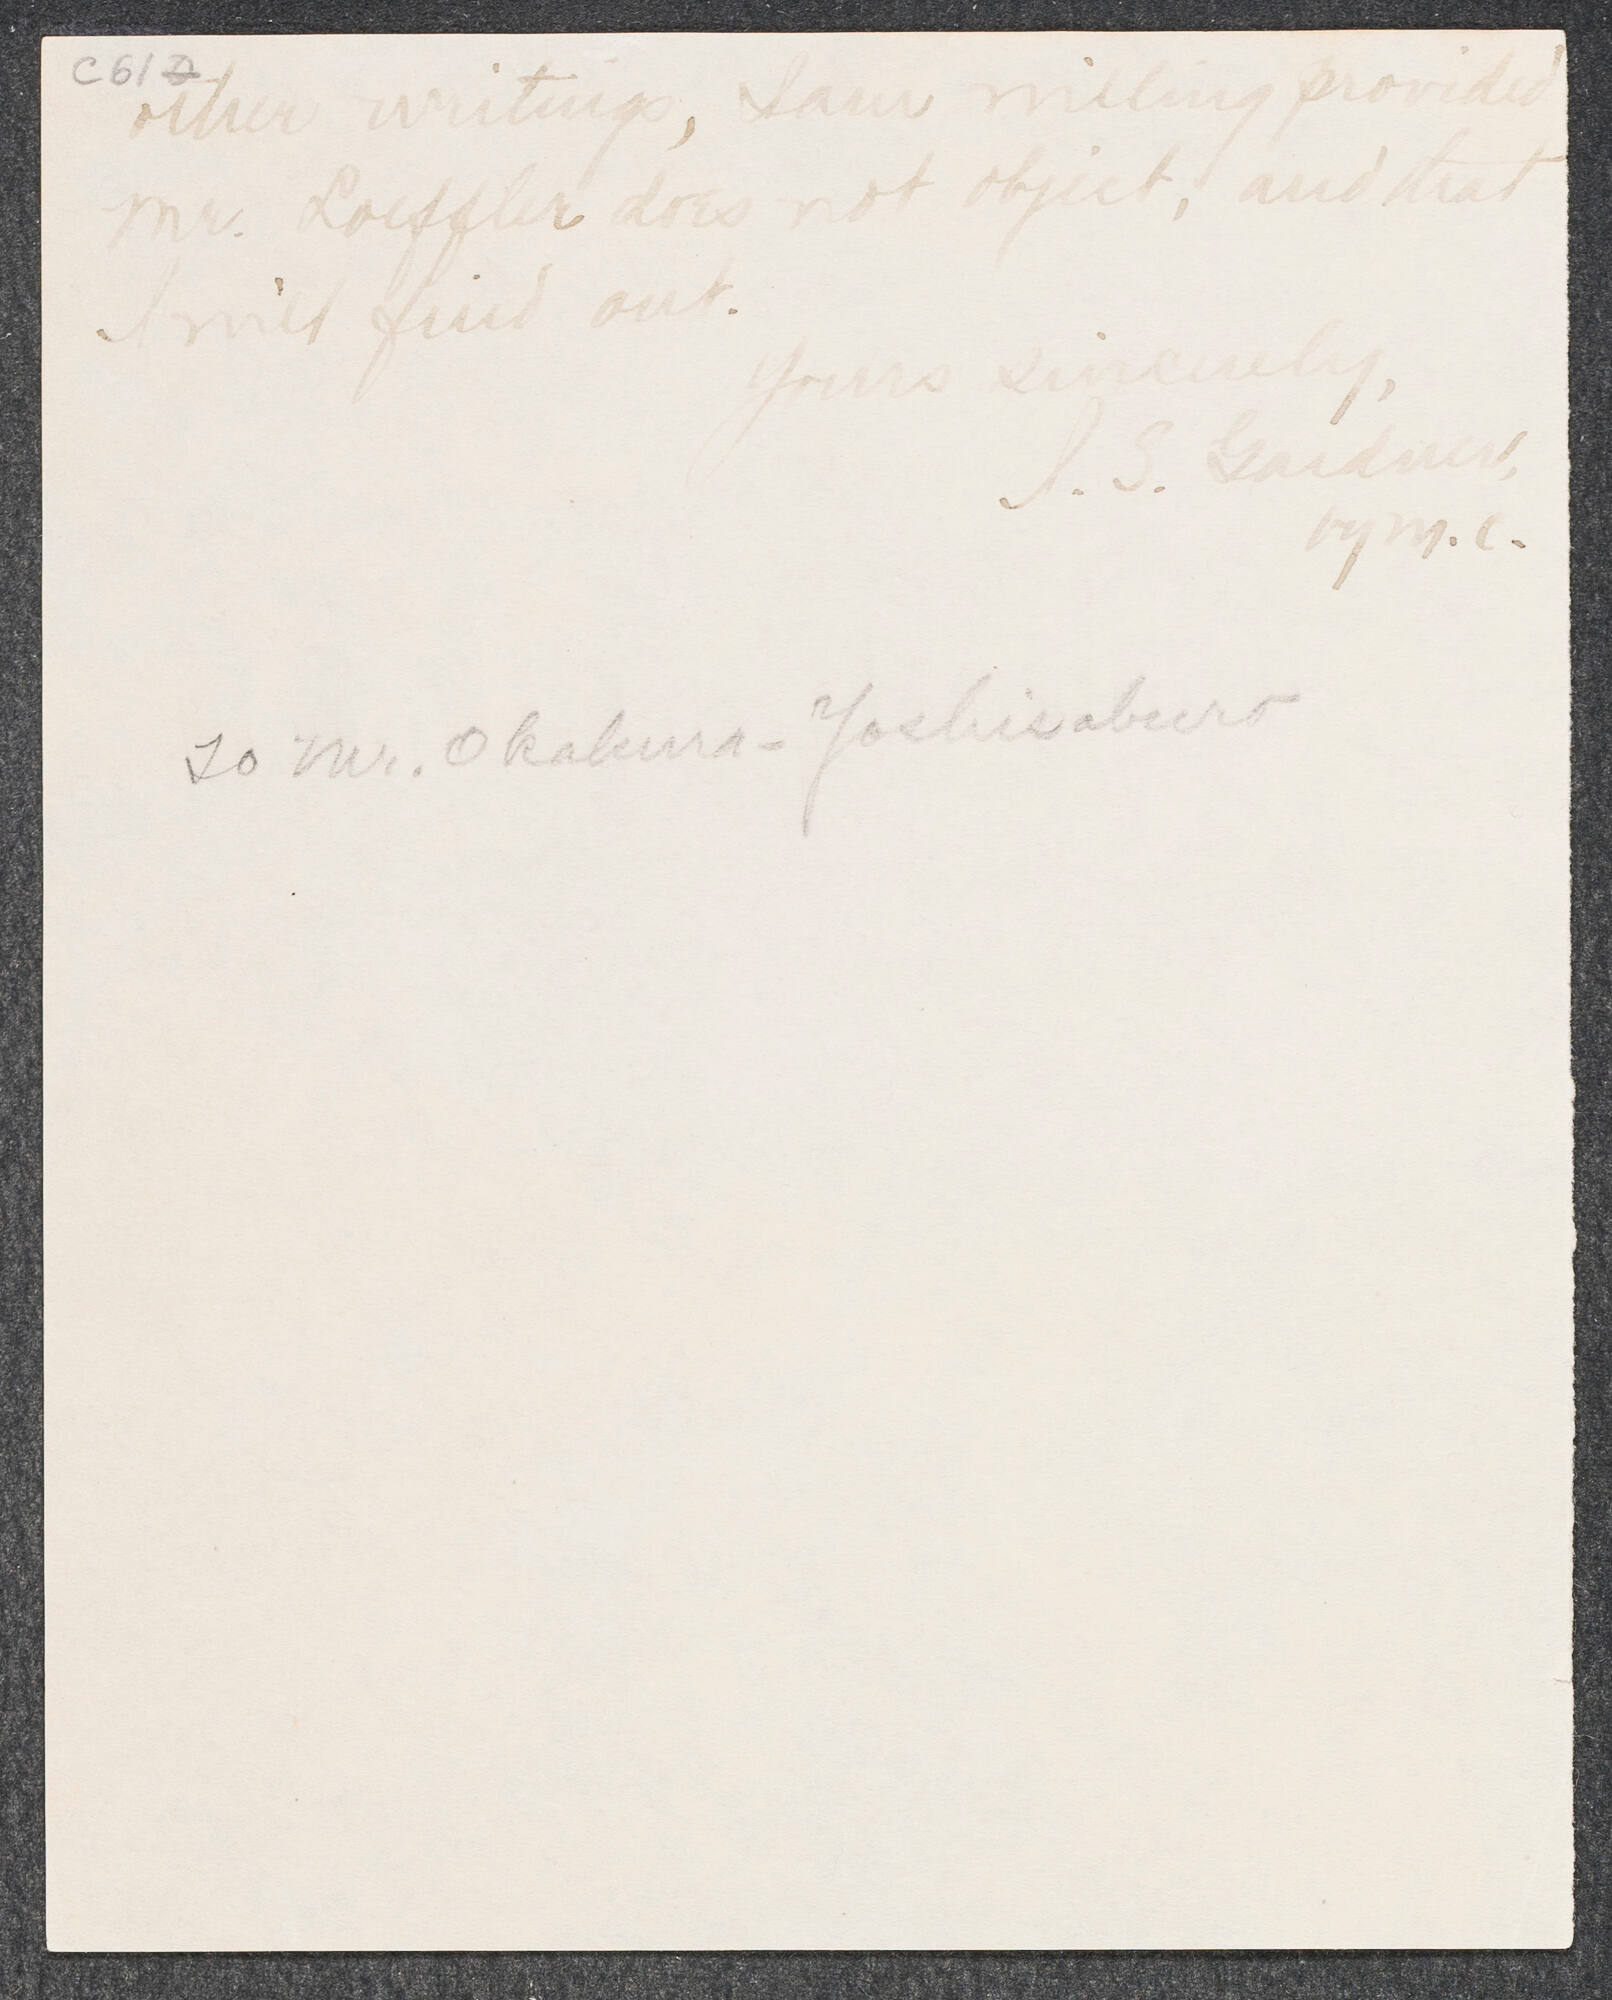 C61
other writings, I am willing provided
Mr. Loeffler does not object, and that
I will find out.
Yours sincerely,
I. S. Gardner,
by M. C.
To Mr. Okakura-Yoshisaburo